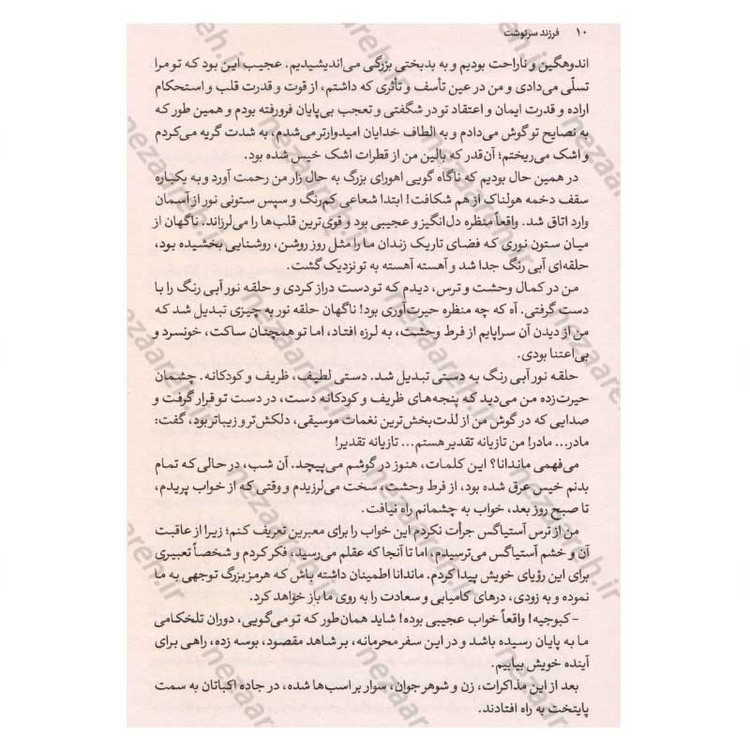 ۱۰ فرزند سرنوشت
اندوهگین و ناراحت بودیم و به بدبختی بزرگی می‌اندیشیدیم. عجیب این بود که تو مرا
تسلّی می‌دادی و من در عین تأسف و تأثری که داشتم، از قوت و قدرت قلب و استحکام
اراده و قدرت ایمان و اعتقاد تو در شگفتی و تعجب بی‌پایان فرورفته بودم و همین طور که
به نصایح تو گوش می‌دادم و به الطاف خدایان امیدوارتر می‌شدم، به شدت گریه می‌کردم
و اشک می‌ریختم؛ آن‌قدر که بالین من از قطرات اشک خیس شده بود.
در همین حال بودیم که ناگاه گویی اهورای بزرگ به حال زار من رحمت آورد و به یکباره
سقف دخمه هولناک از هم شکافت! ابتدا شعاعی کم‌رنگ و سپس ستونی نور از آسمان
وارد اتاق شد. واقعاً منظره دل‌انگیز و عجیبی بود و قوی‌ترین قلب‌ها را می‌لرزاند. ناگهان از
میان ستون نوری که فضای تاریک زندان ما را مثل روز روشن، روشنایی بخشیده بود،
حلقه‌ای آبی رنگ جدا شد و آهسته آهسته به تو نزدیک گشت.
من در کمال وحشت و ترس، دیدم که تو دست دراز کردی و حلقه نور آبی رنگ را با
دست گرفتی. آه که چه منظره حیرت‌آوری بود! ناگهان حلقه نور به چیزی تبدیل شد که
من از دیدن آن سراپایم از فرط وحشت، به لرزه افتاد، اما تو همچنان ساکت، خونسرد و
بی‌اعتنا بودی.
حلقه نور آبی رنگ به دستی تبدیل شد. دستی لطیف، ظریف و کودکانه. چشمان
حیرت‌زده من می‌دید که پنجه‌های ظریف و کودکانه دست، در دست تو قرار گرفت و
صدایی که در گوش من از لذت‌بخش‌ترین نغمات موسیقی، دلکش‌تر و زیباتر بود، گفت:
مادر... مادر! من تازیانه تقدیر هستم... تازیانه تقدیر!
می‌فهمی ماندانا؟ این کلمات، هنوز در گوشم می‌پیچد. آن شب، در حالی که تمام
بدنم خیس عرق شده بود، از فرط وحشت، سخت می‌لرزیدم و وقتی که از خواب پریدم،
تا صبح روز بعد، خواب به چشمانم راه نیافت.
من از ترس آستیاگس جرأت نکردم این خواب را برای معبرین تعریف کنم؛ زیرا از عاقبت
آن و خشم آستیاگس می‌ترسیدم، اما تا آنجا که عقلم می‌رسید، فکر کردم و شخصاً تعبیری
برای این رؤیای خویش پیدا کردم. ماندانا اطمینان داشته باش که هرمز بزرگ توجهی به ما
نموده و به زودی، درهای کامیابی و سعادت را به روی ما باز خواهد کرد.
-کبوجیه! واقعاً خواب عجیبی بوده! شاید همان‌طور که تو می‌گویی، دوران تلخکامی
ما به پایان رسیده باشد و در این سفر محرمانه، بر شاهد مقصود، بوسه زده، راهی برای
آینده خویش بیابیم.
بعد از این مذاکرات، زن و شوهر جوان، سوار بر اسب‌ها شده، در جاده اکباتان به سمت
پایتخت به راه افتادند.
nezaareh.ir